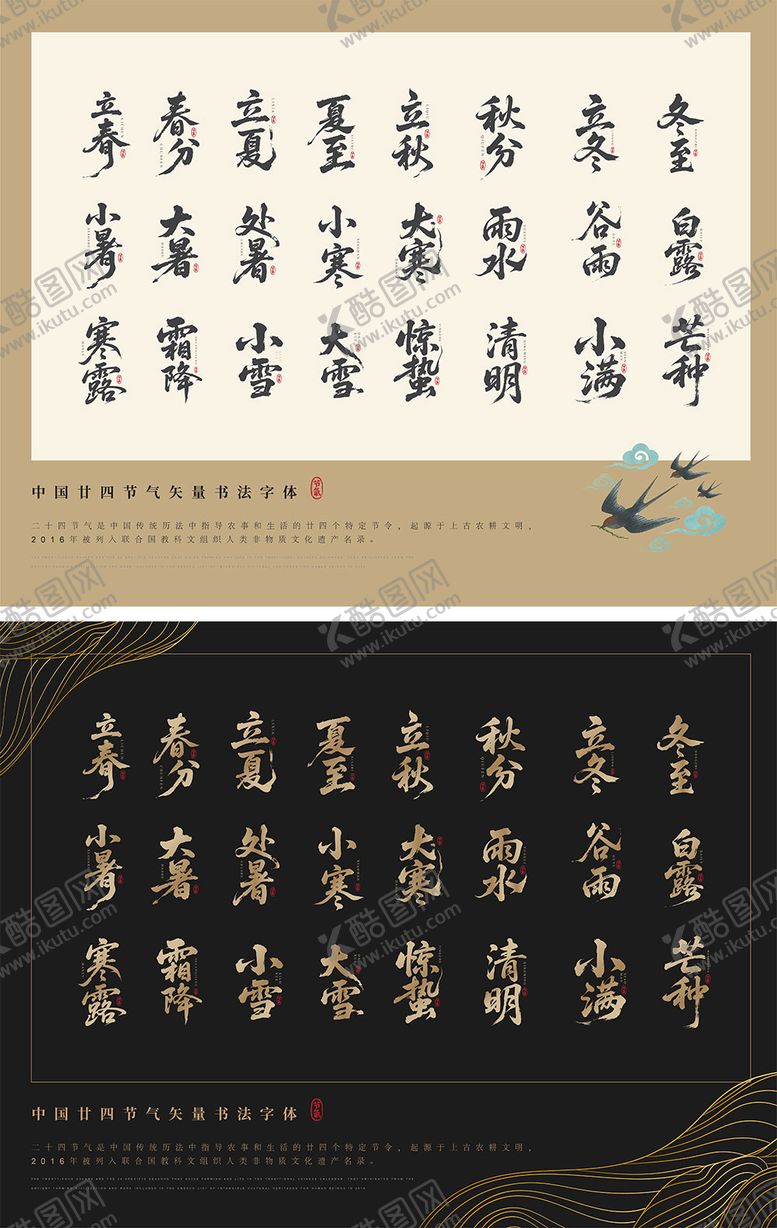 立春 春分 立夏 夏至 立秋 秋分 立冬 冬至
小暑 大暑 处暑 小寒 大寒 雨水 谷雨 白露
寒露 霜降 小雪 大雪 惊蛰 清明 小满 芒种
中国廿四节气矢量书法字体
节气
二十四节气是中国传统历法中指导农事和生活的廿四个特定节令，起源于上古农耕文明，
2016年被列入联合国教科文组织人类非物质文化遗产名录。
立春 春分 立夏 夏至 立秋 秋分 立冬 冬至
小暑 大暑 处暑 小寒 大寒 雨水 谷雨 白露
寒露 霜降 小雪 大雪 惊蛰 清明 小满 芒种
中国廿四节气矢量书法字体
节气
二十四节气是中国传统历法中指导农事和生活的廿四个特定节令，起源于上古农耕文明，
2016年被列入联合国教科文组织人类非物质文化遗产名录。
酷图网
www.ikutu.com